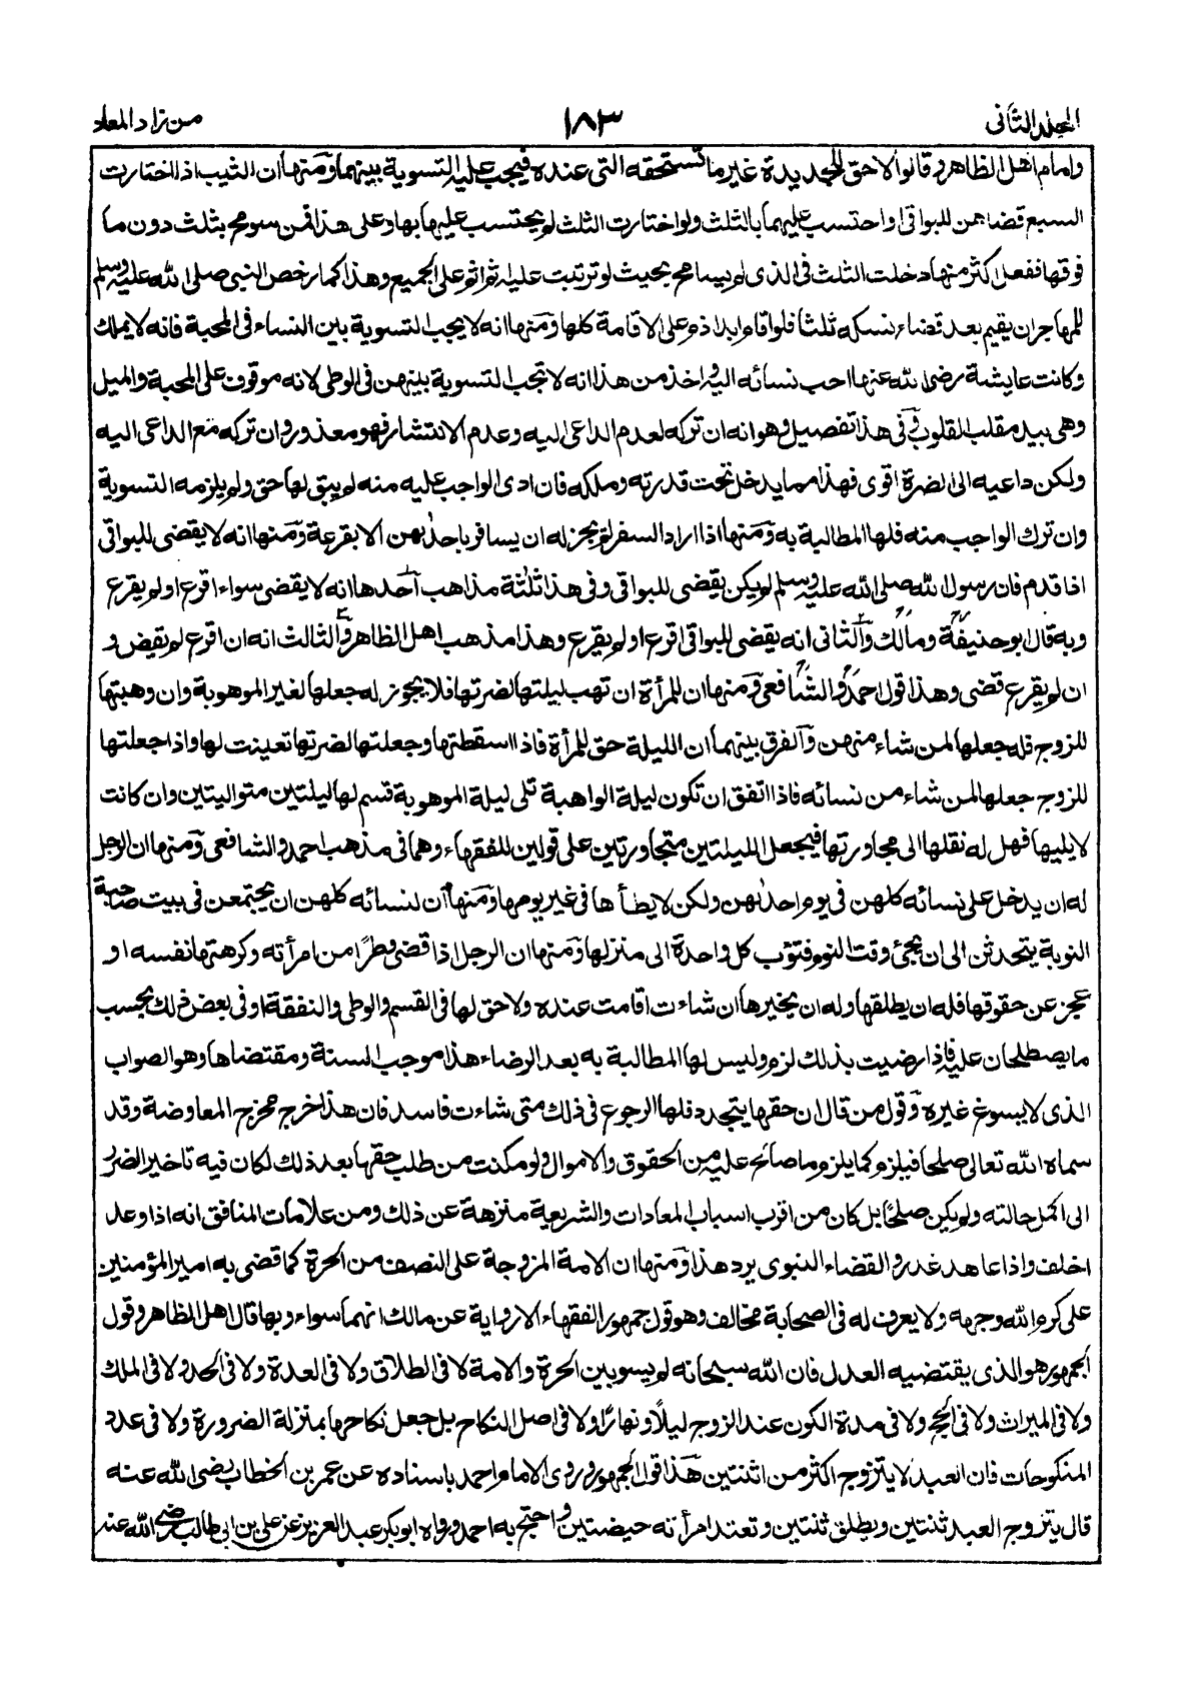 المجلد الثانى
١٨٣
من زاد المعاد
وامام اهل الظاهر وقالوا لا حق للجديدة غير ما تستحقه التى عنده فيجب عليه التسوية بينهما ومنها ان الثيب اذا اختارت
السبع قضاهن للبواقى واحتسب عليهما بالثلث ولو اختارت الثلث لم يحتسب عليها بها وعلى هذا فمن سومح بثلث دون ما
فوقها ففعل اكثر منها دخلت الثلث فى الذى لم يسامح بحيث لو ترتبت عليه اثم اثم على الجميع وهذا كما رخص النبى صلى الله عليه وسلم
للمهاجر ان يقيم بعد قضاء نسكه ثلثا فلو اقام ابدا ذم على الاقامة كلها ومنها انه لا يجب التسوية بين النساء فى المحبة فانه لا يملك
وكانت عايشة رضى الله عنها احب نسائه اليه واخذ من هذا انه لا تجب التسوية بينهن فى الوطى لانه موقوف على المحبة والميل
وهى بيد مقلب القلوب وفى هذا تفصيل وهو انه ان تركه لعدم الداعى اليه وعدم الانتشار فهو معذور وان تركه مع الداعى اليه
ولكن داعيه الى الضرة اقوى فهذا مما يدخل تحت قدرته وملكه فان ادى الواجب عليه منه لم يبق لها حق ولم يلزمه التسوية
وان ترك الواجب منه فلها المطالبة به ومنها اذا اراد السفر لم يجز له ان يسافر باحدٰهن الا بقرعة ومنها انه لا يقضى للبواقى
اذا قدم فان رسول الله صلى الله عليه وسلم لم يكن يقضى للبواقى وفى هذا ثلٰثة مذاهب احدها انه لا يقضى سواء اقرع او لم يقرع
وبه قال ابو حنيفة ومالك والثانى انه يقضى للبواقى اقرع او لم يقرع وهذا مذهب اهل الظاهر والثالث انه ان اقرع لم يقض و
ان لم يقرع قضى وهذا قول احمد والشافعى ومنها ان للمرأة ان تهب ليلتها لضرتها فلا يجوز له جعلها لغير الموهوبة وان وهبتها
للزوج فله جعلها لمن شاء منهن والفرق بينهما ان الليلة حق للمرأة فاذا اسقطتها وجعلتها لضرتها تعينت لها واذا جعلتها
للزوج جعلها لمن شاء من نسائه فاذا اتفق ان تكون ليلة الواهبة تلى ليلة الموهوبة قسم لها ليلتين متواليتين وان كانت
لا يليها فهل له نقلها الى مجاورتها فيجعل الليلتين متجاورتين على قولين للفقهاء وهما فى مذهب احمد والشافعى ومنها ان الرجل
له ان يدخل على نسائه كلهن فى يوم احدٰهن ولكن لا يطأها فى غير يومها ومنها ان لنسائه كلهن ان يجتمعن فى بيت صاحبة
النوبة يتحدثن الى ان يجئ وقت النوم فتؤب كل واحدة الى منزلها ومنها ان الرجل اذا قضى وطرًا من امرأته وكرهتها نفسه او
عجز عن حقوقها فله ان يطلقها وله ان يخيرها ان شاءت اقامت عنده ولا حق لها فى القسم والوطى والنفقة او فى بعض ذلك بحسب
ما يصطلحان عليه فاذا رضيت بذلك لزم وليس لها المطالبة به بعد الرضاء هذا موجب السنة ومقتضاها وهو الصواب
الذى لا يسوغ غيره وقول من قال ان حقها يتجدد فلها الرجوع فى ذلك متى شاءت فاسد فان هذا خرج مخرج المعاوضة وقد
سماه الله تعالى صلحا فيلزم كما يلزم ما صالح عليه من الحقوق والاموال ولو مكنت من طلب حقها بعد ذلك لكان فيه تاخير الضرر
الى اكمل حالته ولم يكن صلحًا بل كان من اقرب اسباب المعادات والشريعة منزهة عن ذلك ومن علامات المنافق انه اذا وعد
اخلف واذا عاهد غدر والقضاء النبوى يرد هذا ومنها ان الامة المزوجة على النصف من الحرة كما قضى به امير المؤمنين
على كرم الله وجهه ولا يعرف له فى الصحابة مخالف وهو قول جمهور الفقهاء الا رواية عن مالك انهما سواء وبها قال اهل الظاهر وقول
الجمهور هو الذى يقتضيه العدل فان الله سبحانه لم يسو بين الحرة والامة لا فى الطلاق ولا فى العدة ولا فى الحد ولا فى الملك
ولا فى الميراث ولا فى الحج ولا فى مدة الكون عند الزوج ليلًا ونهارًا ولا فى اصل النكاح بل جعل نكاحها بمنزلة الضرورة ولا فى عدد
المنكوحات فان العبد لا يتزوج اكثر من اثنتين هذا قول الجمهور وروى الامام احمد باسناده عن عمر بن الخطاب رضى الله عنه
قال يتزوج العبد ثنتين ويطلق ثنتين وتعتد امرأته حيضتين واحتج به احمد ورواه ابو بكر عبد العزيز عن على بن ابى طالب رضى الله عنه